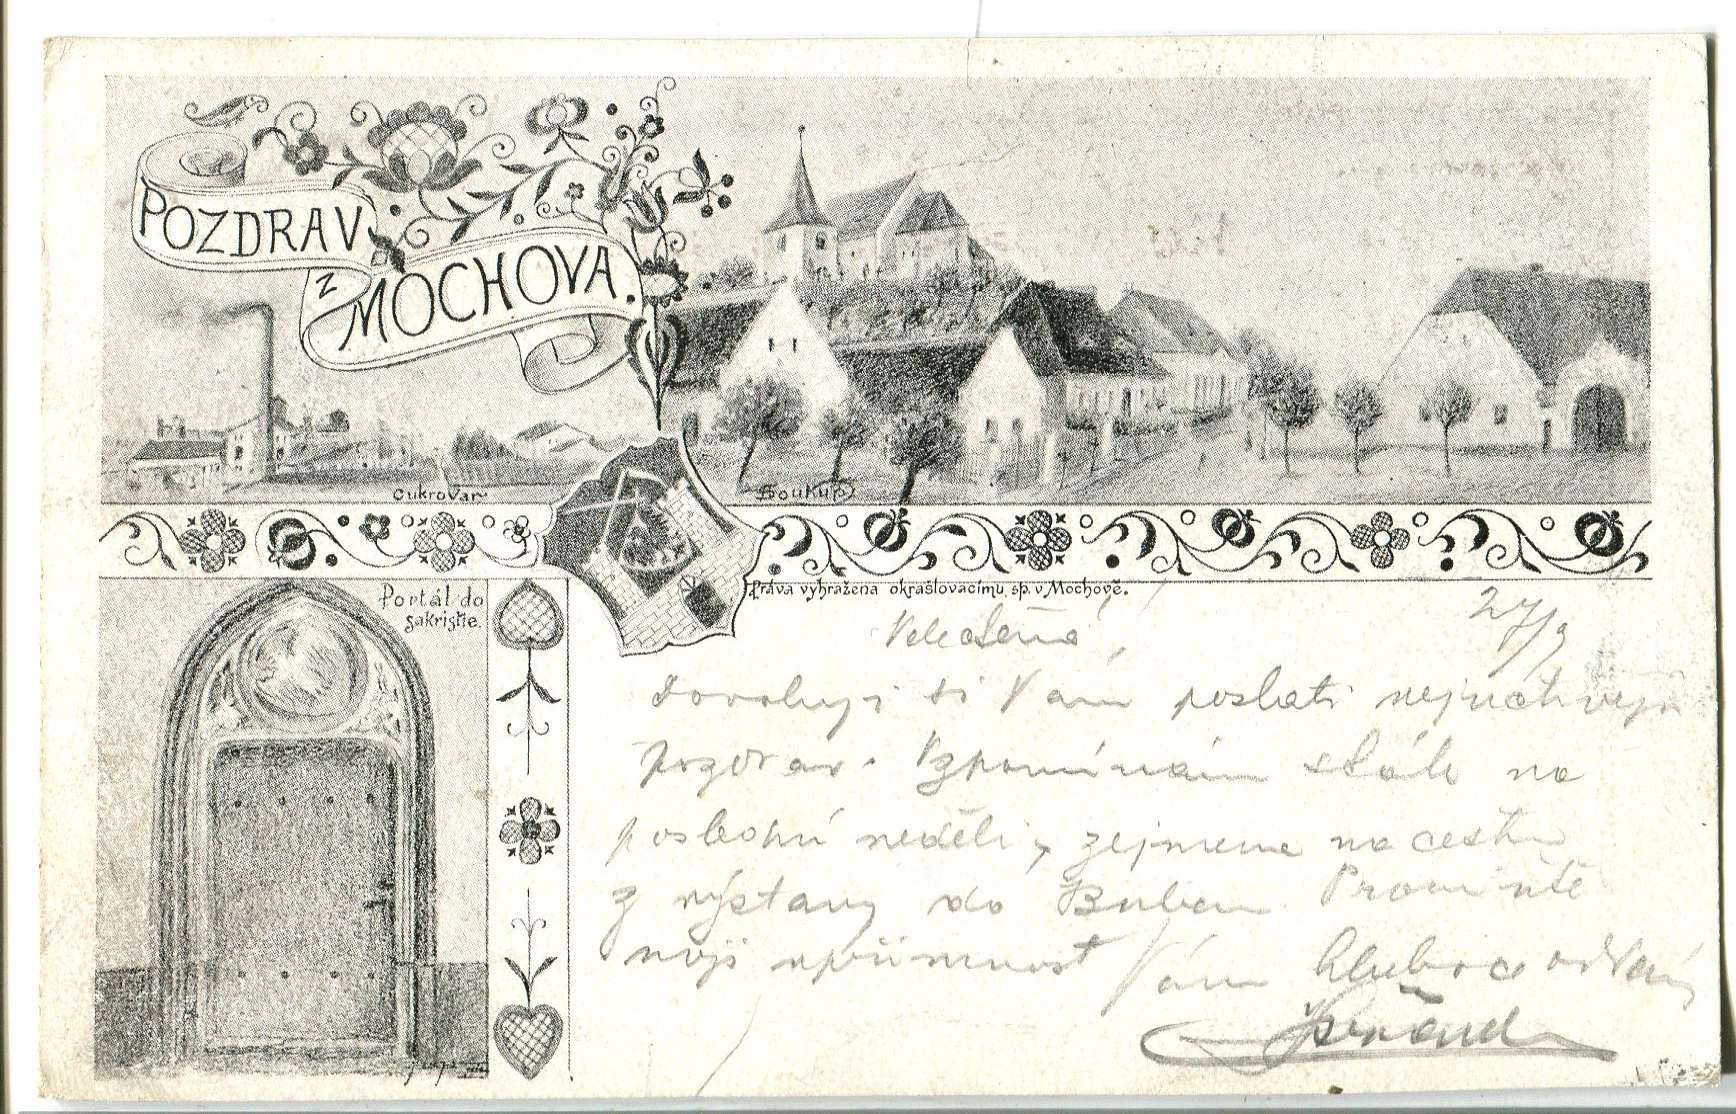 POZDRAV
z
MOCHOVA.
Cukrovar
Soukup
Portál do
sakristie.
Práva vyhražena okrašlovacímu sp. v Mochově.
27/9
Velectěná,
Dovoluji si Vám poslati nejuctivější
pozdrav. Vzpomínám stále na
poslední neděli, zejmena na cestu
z výstavy do Buben. Promiňte
moji upřímnost Vám hluboce oddaný